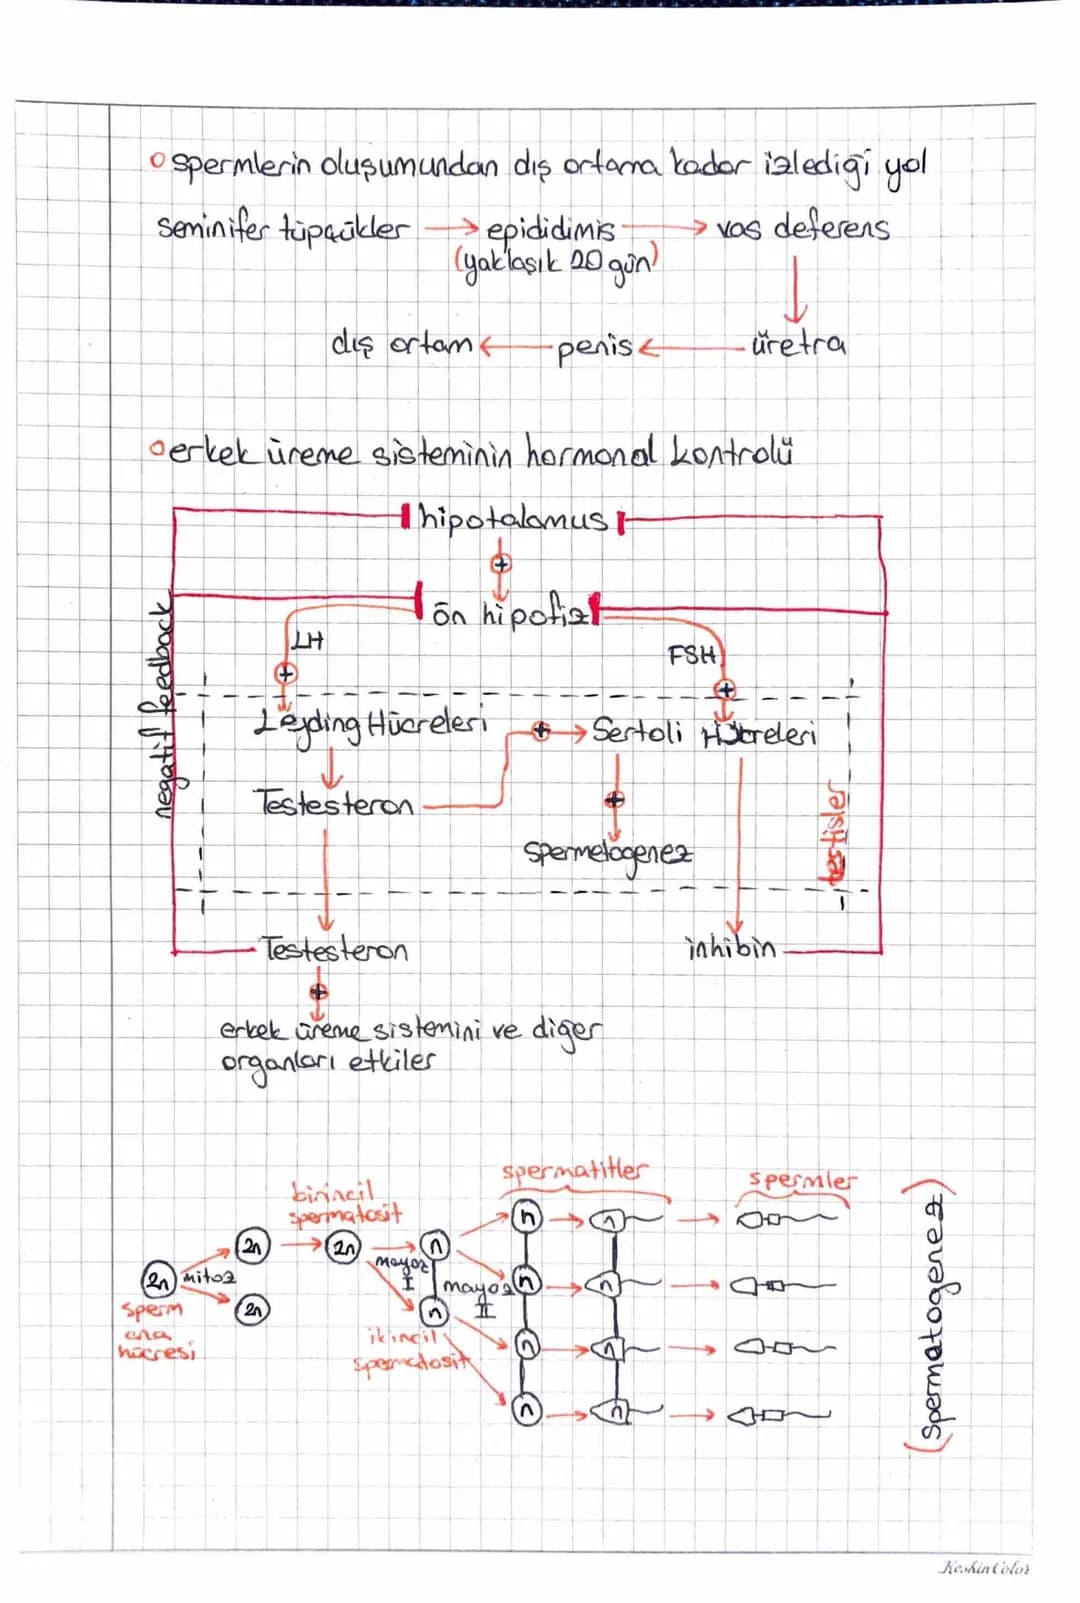 spermlerin oluşumundan dış ortama kadar izlediği yol
seminifer tüpçükler → epididimis → vas deferens
(yaklaşık 20 gün)
dış ortam ← penis ← üretra
erkek üreme sisteminin hormonal kontrolü
hipotalamus
+
ön hipofiz
LH
FSH
+
+
negatif feedback
Leyding Hücreleri
+
Sertoli Hücreleri
Testesteron
+
testisler
spermetogenez
Testesteron
inhibin
+
erkek üreme sistemini ve diğer
organları etkiler
spermatitler
spermler
birincil
spermatosit
2n
mitoz
2n
2n
2n
mayoz
I
n
n
mayoz
II
n
n
n
n
n
n
n
n
sperm
ana
hücresi
ikincil
spermatosit
(Spermatogenez)
KeskinColor